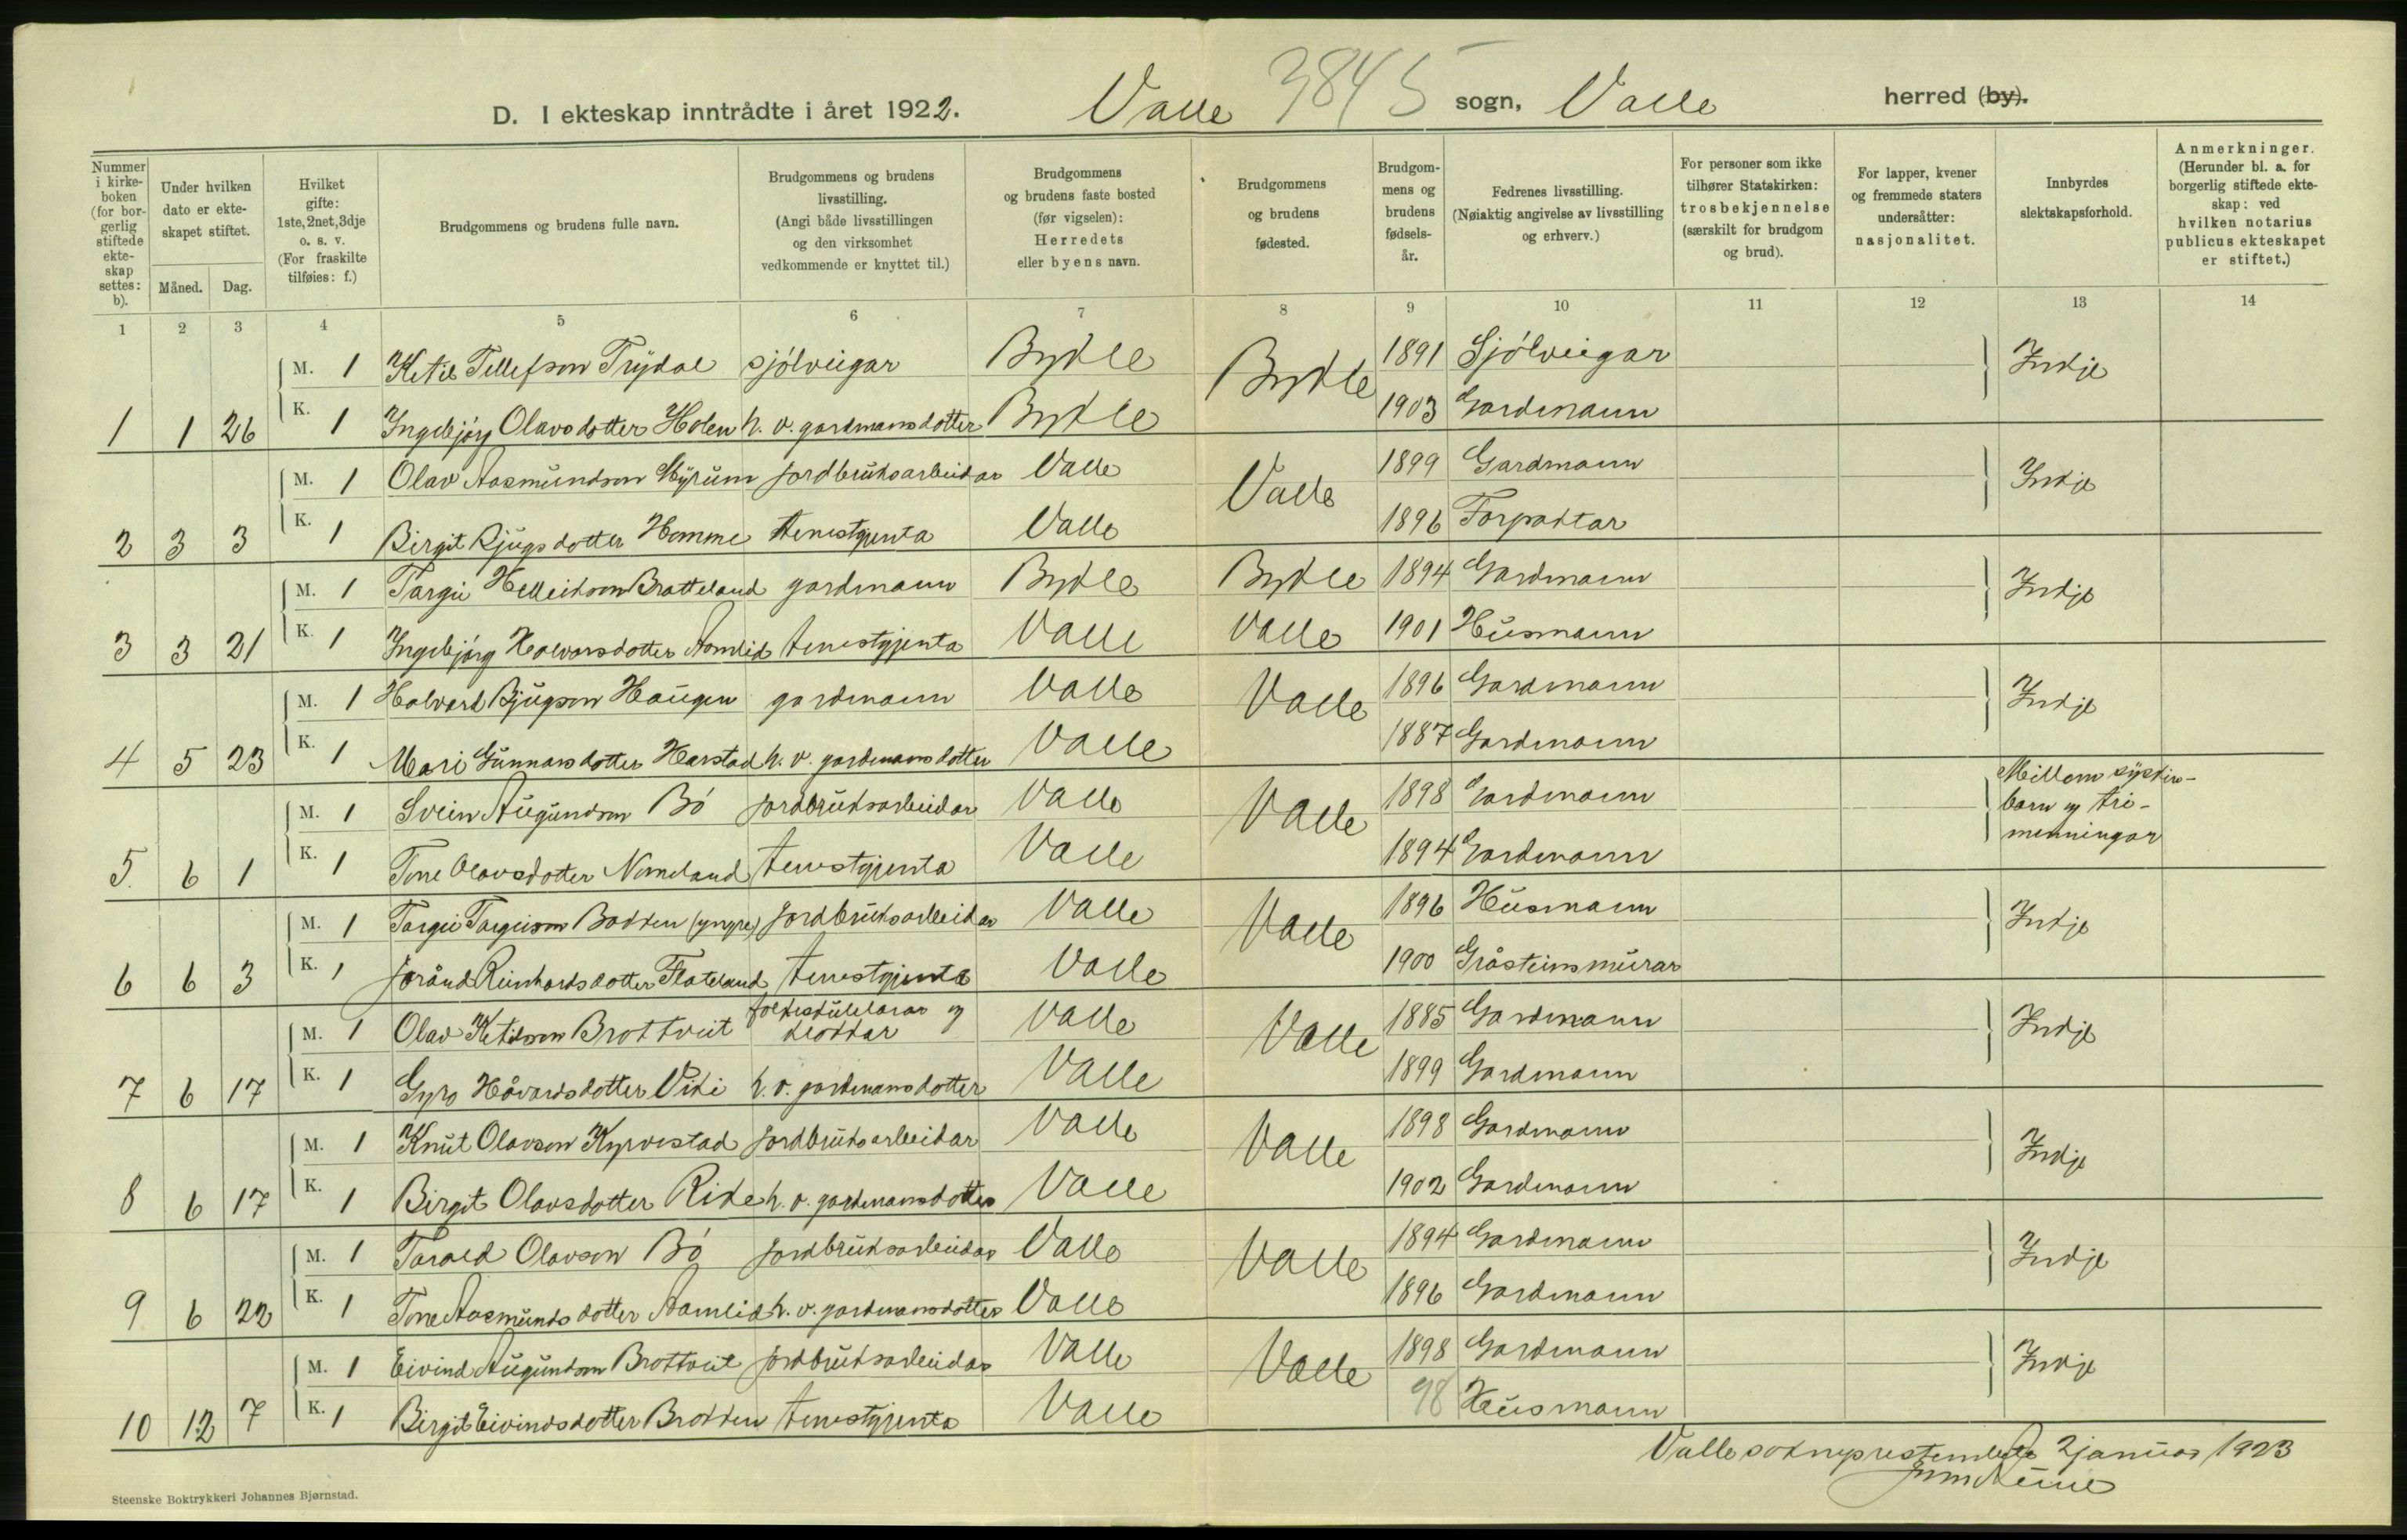 D. I ekteskap inntrådte i året 1922. Valle 3845 sogn, Valle herred (by).
Nummer i kirke-boken (for bor-gerlig stiftede ekte-skap settes: b).
Under hvilken dato er ekte-skapet stiftet.
Måned. Dag.
Hvilket gifte: 1ste, 2net, 3dje o. s. v. (For fraskilte tilføies: f.)
Brudgommens og brudens fulle navn.
Brudgommens og brudens livsstilling. (Angi både livsstillingen og den virksomhet vedkommende er knyttet til.)
Brudgommens og brudens faste bosted (før vigselen): Herredets eller byens navn.
Brudgommens og brudens fødested.
Brudgom-mens og brudens fødsels-år.
Fedrenes livsstilling. (Nøiaktig angivelse av livsstilling og erhverv.)
For personer som ikke tilhører Statskirken: trosbekjennelse (særskilt for brudgom og brud).
For lapper, kvener og fremmede staters undersåtter: nasjonalitet.
Innbyrdes slektskapsforhold.
Anmerkninger. (Herunder bl. a. for borgerlig stiftede ekte-skap: ved hvilken notarius publicus ekteskapet er stiftet.)
1 2 3 4 5 6 7 8 9 10 11 12 13 14
M. 1 Ketil Tellefson Trydal sjólveigar Bykle Bykle 1891 Sjólveigar Inkje
1 1 26 K. 1 Ingebjórg Olavsdotter Holen h. v. gardmansdotter Bykle 1903 Gardmann
M. 1 Olav Aasmundson Myrum jordbruksarbeidar Valle Valle 1899 Gardmann Inkje
2 3 3 K. 1 Birgit Bjugsdotter Homme tenestgjenta Valle 1896 Forpaktar
M. 1 Targei Helleikson Bratteland gardmann Bykle Bykle 1894 Gardmann Inkje
3 3 21 K. 1 Ingebjórg Halvorsdotter Aamlid tenestgjenta Valle Valle 1901 Husmann
M. 1 Halvard Bjugson Haugen gardmann Valle Valle 1896 Gardmann Inkje
4 5 23 K. 1 Mari Gunnarsdotter Harstad h. v. gardmansdotter Valle 1887 Gardmann
M. 1 Svein Augundson Bó jordbruksarbeidar Valle Valle 1898 Gardmann Millom syskin-
barn og tri-
menningar
5. 6 1 K. 1 Tone Olavsdotter Nomeland tenestgjenta Valle 1894 Gardmann
M. 1 Targei Targeison Bakken (yngre) jordbruksarbeidar Valle Valle 1896 Husmann Inkje
6 6 3 K. 1 Jorånd Reinhardsdotter Flateland tenestgjenta Valle 1900 Gråsteinsmurar
M. 1 Olav Ketilson Brottveit folkeskulelærar og klokkar Valle Valle 1885 Gardmann Inkje
7 6 17 K. 1 Gyro Håvardsdotter Viki h. v. gardmansdotter Valle 1899 Gardmann
M. 1 Knut Olavson Kyrvestad jordbruksarbeidar Valle Valle 1898 Gardmann Inkje
8 6 17 K. 1 Birgit Olavsdotter Rike h. v. gardmansdotter Valle 1902 Gardmann
M. 1 Tarald Olavson Bó jordbruksarbeidar Valle Valle 1894 Gardmann Inkje
9 6 22 K. 1 Tone Aasmundsdotter Aamlid h. v. gardmansdotter Valle 1896 Gardmann
M. 1 Eivind Augundson Brottveit jordbruksarbeidar Valle Valle 1898 Gardmann Inkje
10 12 7 K. 1 Birgit Eivindsdotter Brokken tenestgjenta Valle 98 Husmann
Valle sokneprestembete 2 januar 1923
Steenske Boktrykkeri Johannes Bjørnstad.